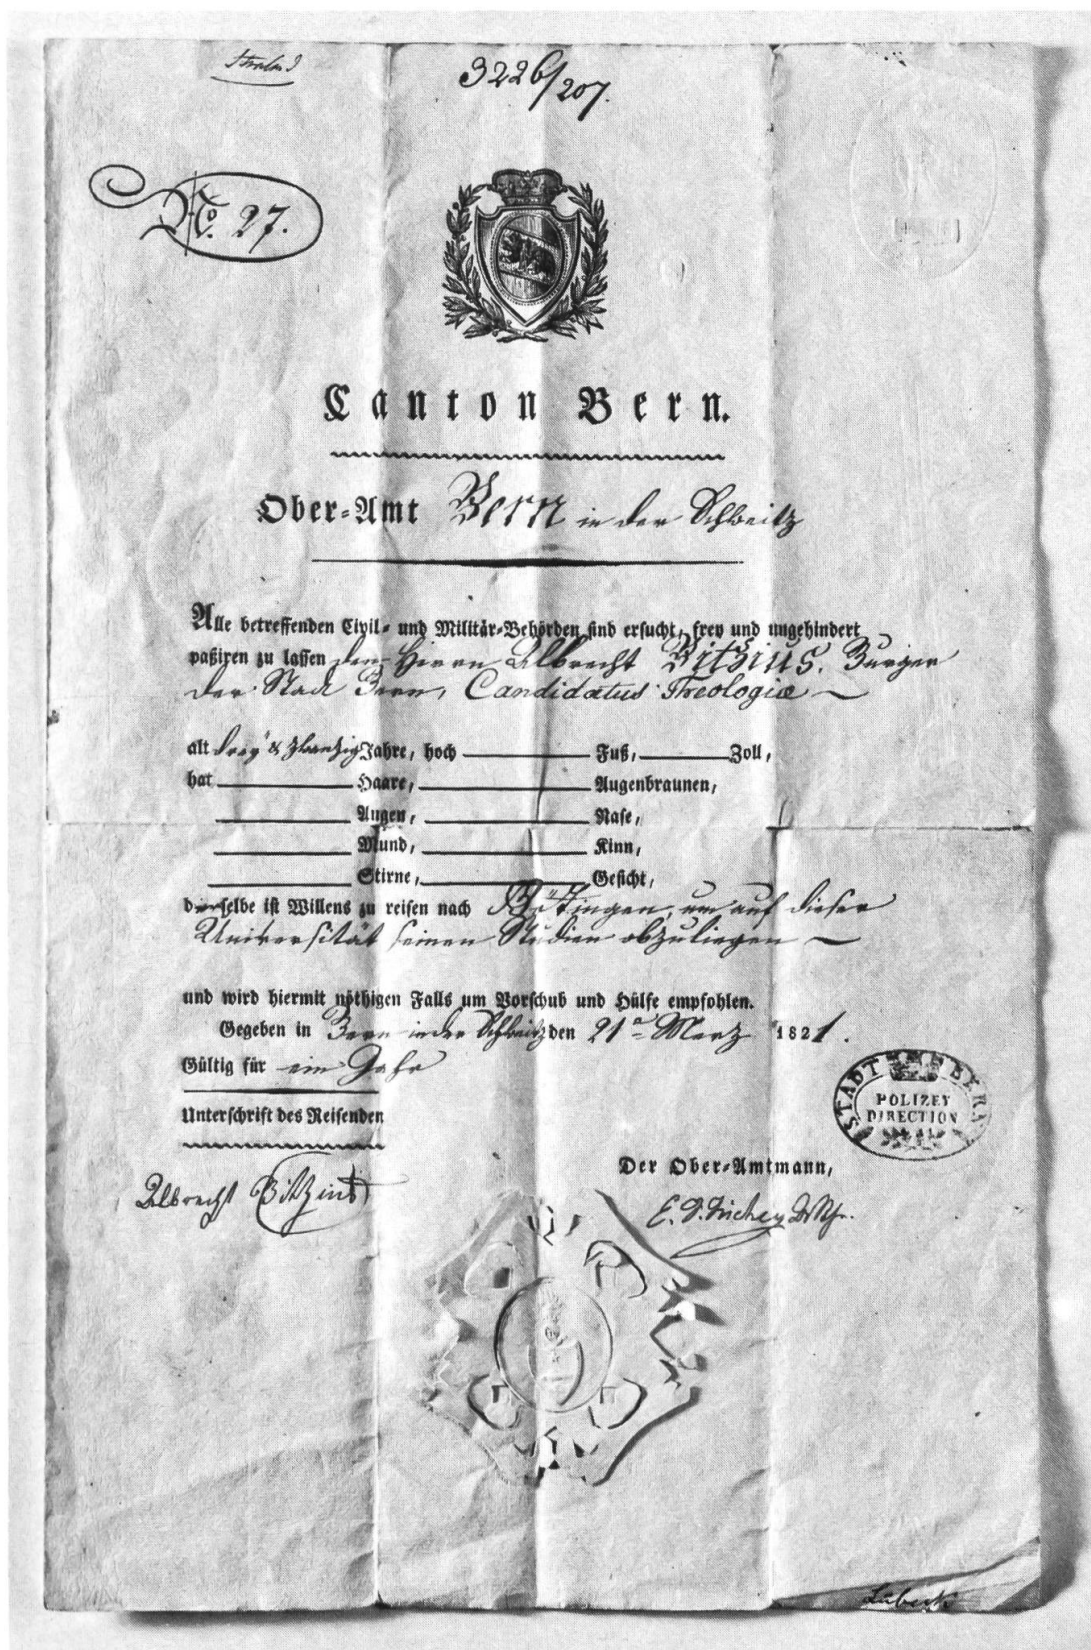 3226/207.
No. 27.
Canton Bern.
Ober-Amt Bern in der Schweitz
Alle betreffenden Civil- und Militär-Behörden sind ersucht, frey und ungehindert
paßiren zu lassen den Herrn Albrecht Bitzius. Burger
der Stadt Bern, Candidatus Theologiæ
alt drey & zwanzig Jahre, hoch Fuß, Zoll,
hat Haare, Augenbraunen,
Augen, Nase,
Mund, Kinn,
Stirne, Gesicht,
derselbe ist Willens zu reisen nach Göttingen, um auf dieser
Universität seinen Studien obzuliegen
und wird hiermit nöthigen Falls um Vorschub und Hülfe empfohlen.
Gegeben in Bern in der Schweitz den 21n Merz 1821.
Gültig für ein Jahr
STADT BERN
POLIZEY
DIRECTION
Unterschrift des Reisenden
Der Ober-Amtmann,
Albrecht Bitzius
Lübeck